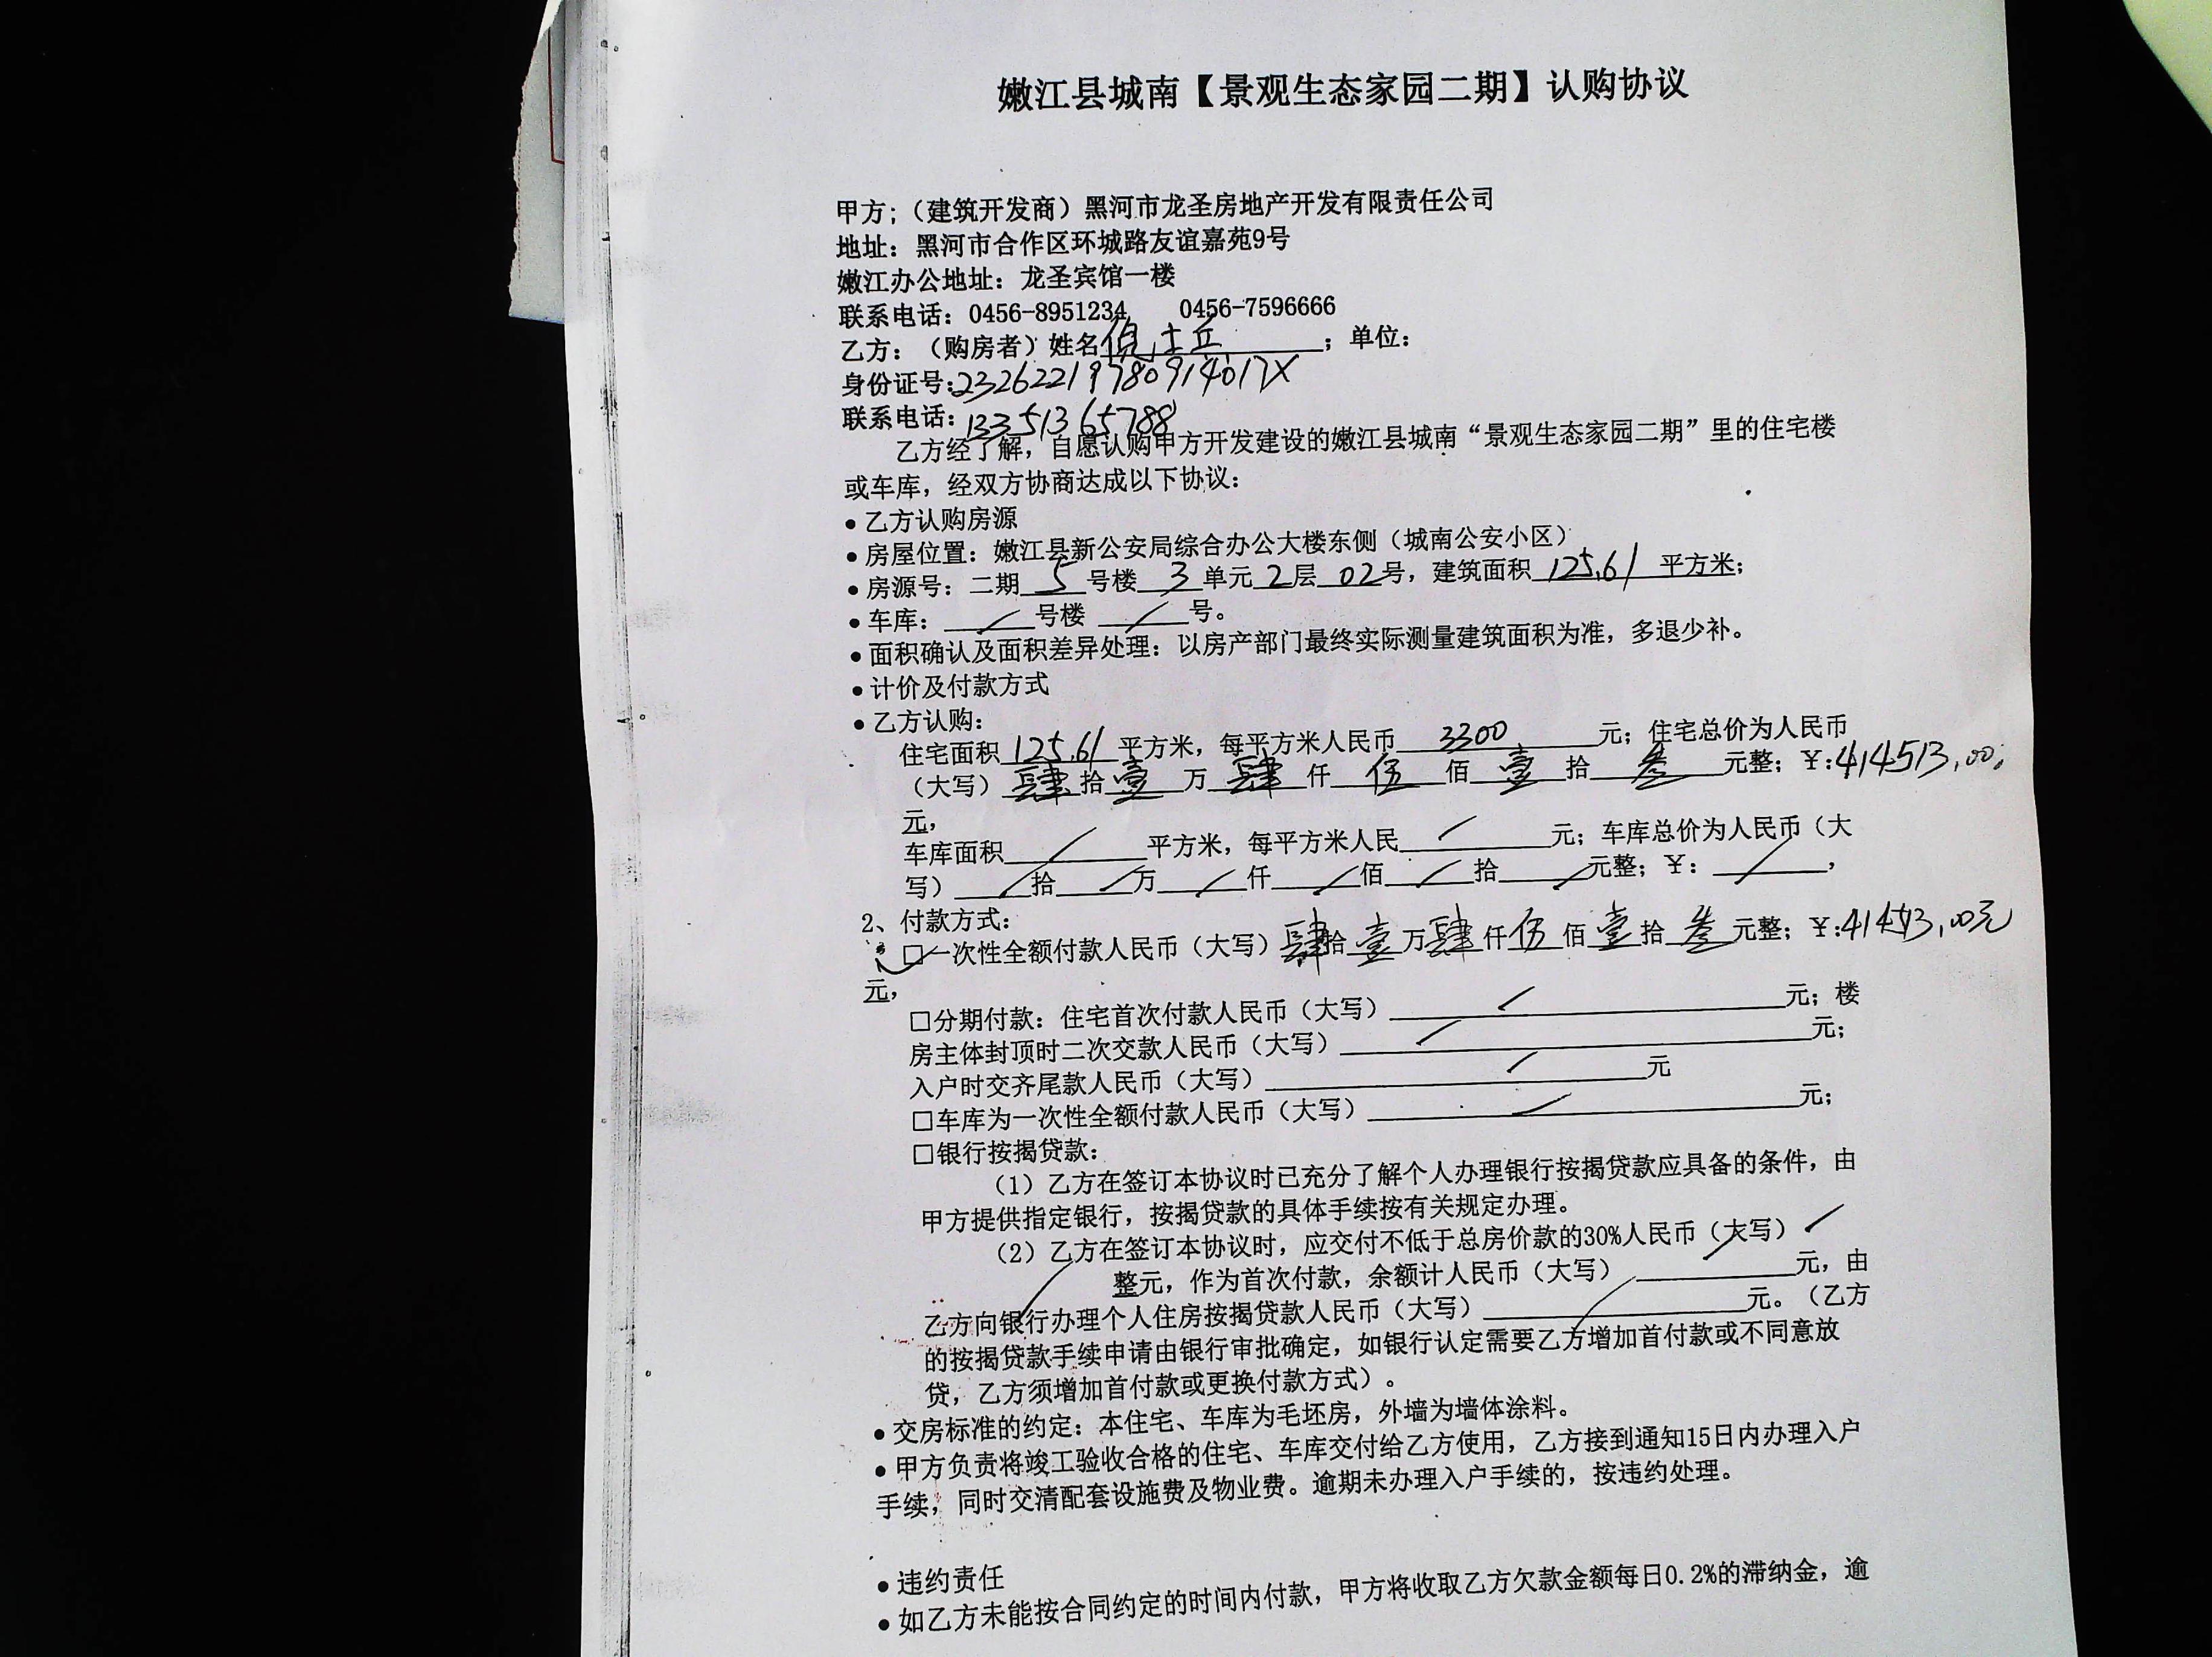 嫩江县城南【景观生态家园二期】认购协议
甲方;（建筑开发商）黑河市龙圣房地产开发有限责任公司
地址：黑河市合作区环城路友谊嘉苑9号
嫩江办公地址：龙圣宾馆一楼
联系电话：0456-8951234　0456-7596666
乙方：（购房者）姓名　　；单位：
身份证号:23262219780914017X
联系电话：13351365788
乙方经了解，自愿认购甲方开发建设的嫩江县城南“景观生态家园二期”里的住宅楼
或车库，经双方协商达成以下协议：
●乙方认购房源
●房屋位置：嫩江县新公安局综合办公大楼东侧（城南公安小区）
●房源号：二期 5 号楼 3 单元 2 层 02 号，建筑面积 125.61 平方米；
●车库： / 号楼 / 号。
●面积确认及面积差异处理：以房产部门最终实际测量建筑面积为准，多退少补。
●计价及付款方式
●乙方认购：
住宅面积 125.61 平方米，每平方米人民币 3300 元；住宅总价为人民币
（大写）肆拾壹万肆仟伍佰壹拾叁元整；￥:414513.00.
元，
车库面积 / 平方米，每平方米人民 / 元；车库总价为人民币（大
写） / 拾 / 万 / 仟 / 佰 / 拾 / 元整；￥： / ，
2、付款方式：
□一次性全额付款人民币（大写）肆拾壹万肆仟伍佰壹拾叁元整；￥:414513.00元
元，
□分期付款：住宅首次付款人民币（大写） / 元；楼
房主体封顶时二次交款人民币（大写） / 元；
入户时交齐尾款人民币（大写） / 元
□车库为一次性全额付款人民币（大写） / 元；
□银行按揭贷款：
（1）乙方在签订本协议时已充分了解个人办理银行按揭贷款应具备的条件，由
甲方提供指定银行，按揭贷款的具体手续按有关规定办理。
（2）乙方在签订本协议时，应交付不低于总房价款的30%人民币（大写） /
整元，作为首次付款，余额计人民币（大写） / 元，由
乙方向银行办理个人住房按揭贷款人民币（大写） / 元。（乙方
的按揭贷款手续申请由银行审批确定，如银行认定需要乙方增加首付款或不同意放
贷，乙方须增加首付款或更换付款方式）。
●交房标准的约定：本住宅、车库为毛坯房，外墙为墙体涂料。
●甲方负责将竣工验收合格的住宅、车库交付给乙方使用，乙方接到通知15日内办理入户
手续，同时交清配套设施费及物业费。逾期未办理入户手续的，按违约处理。
●违约责任
●如乙方未能按合同约定的时间内付款，甲方将收取乙方欠款金额每日0.2%的滞纳金，逾